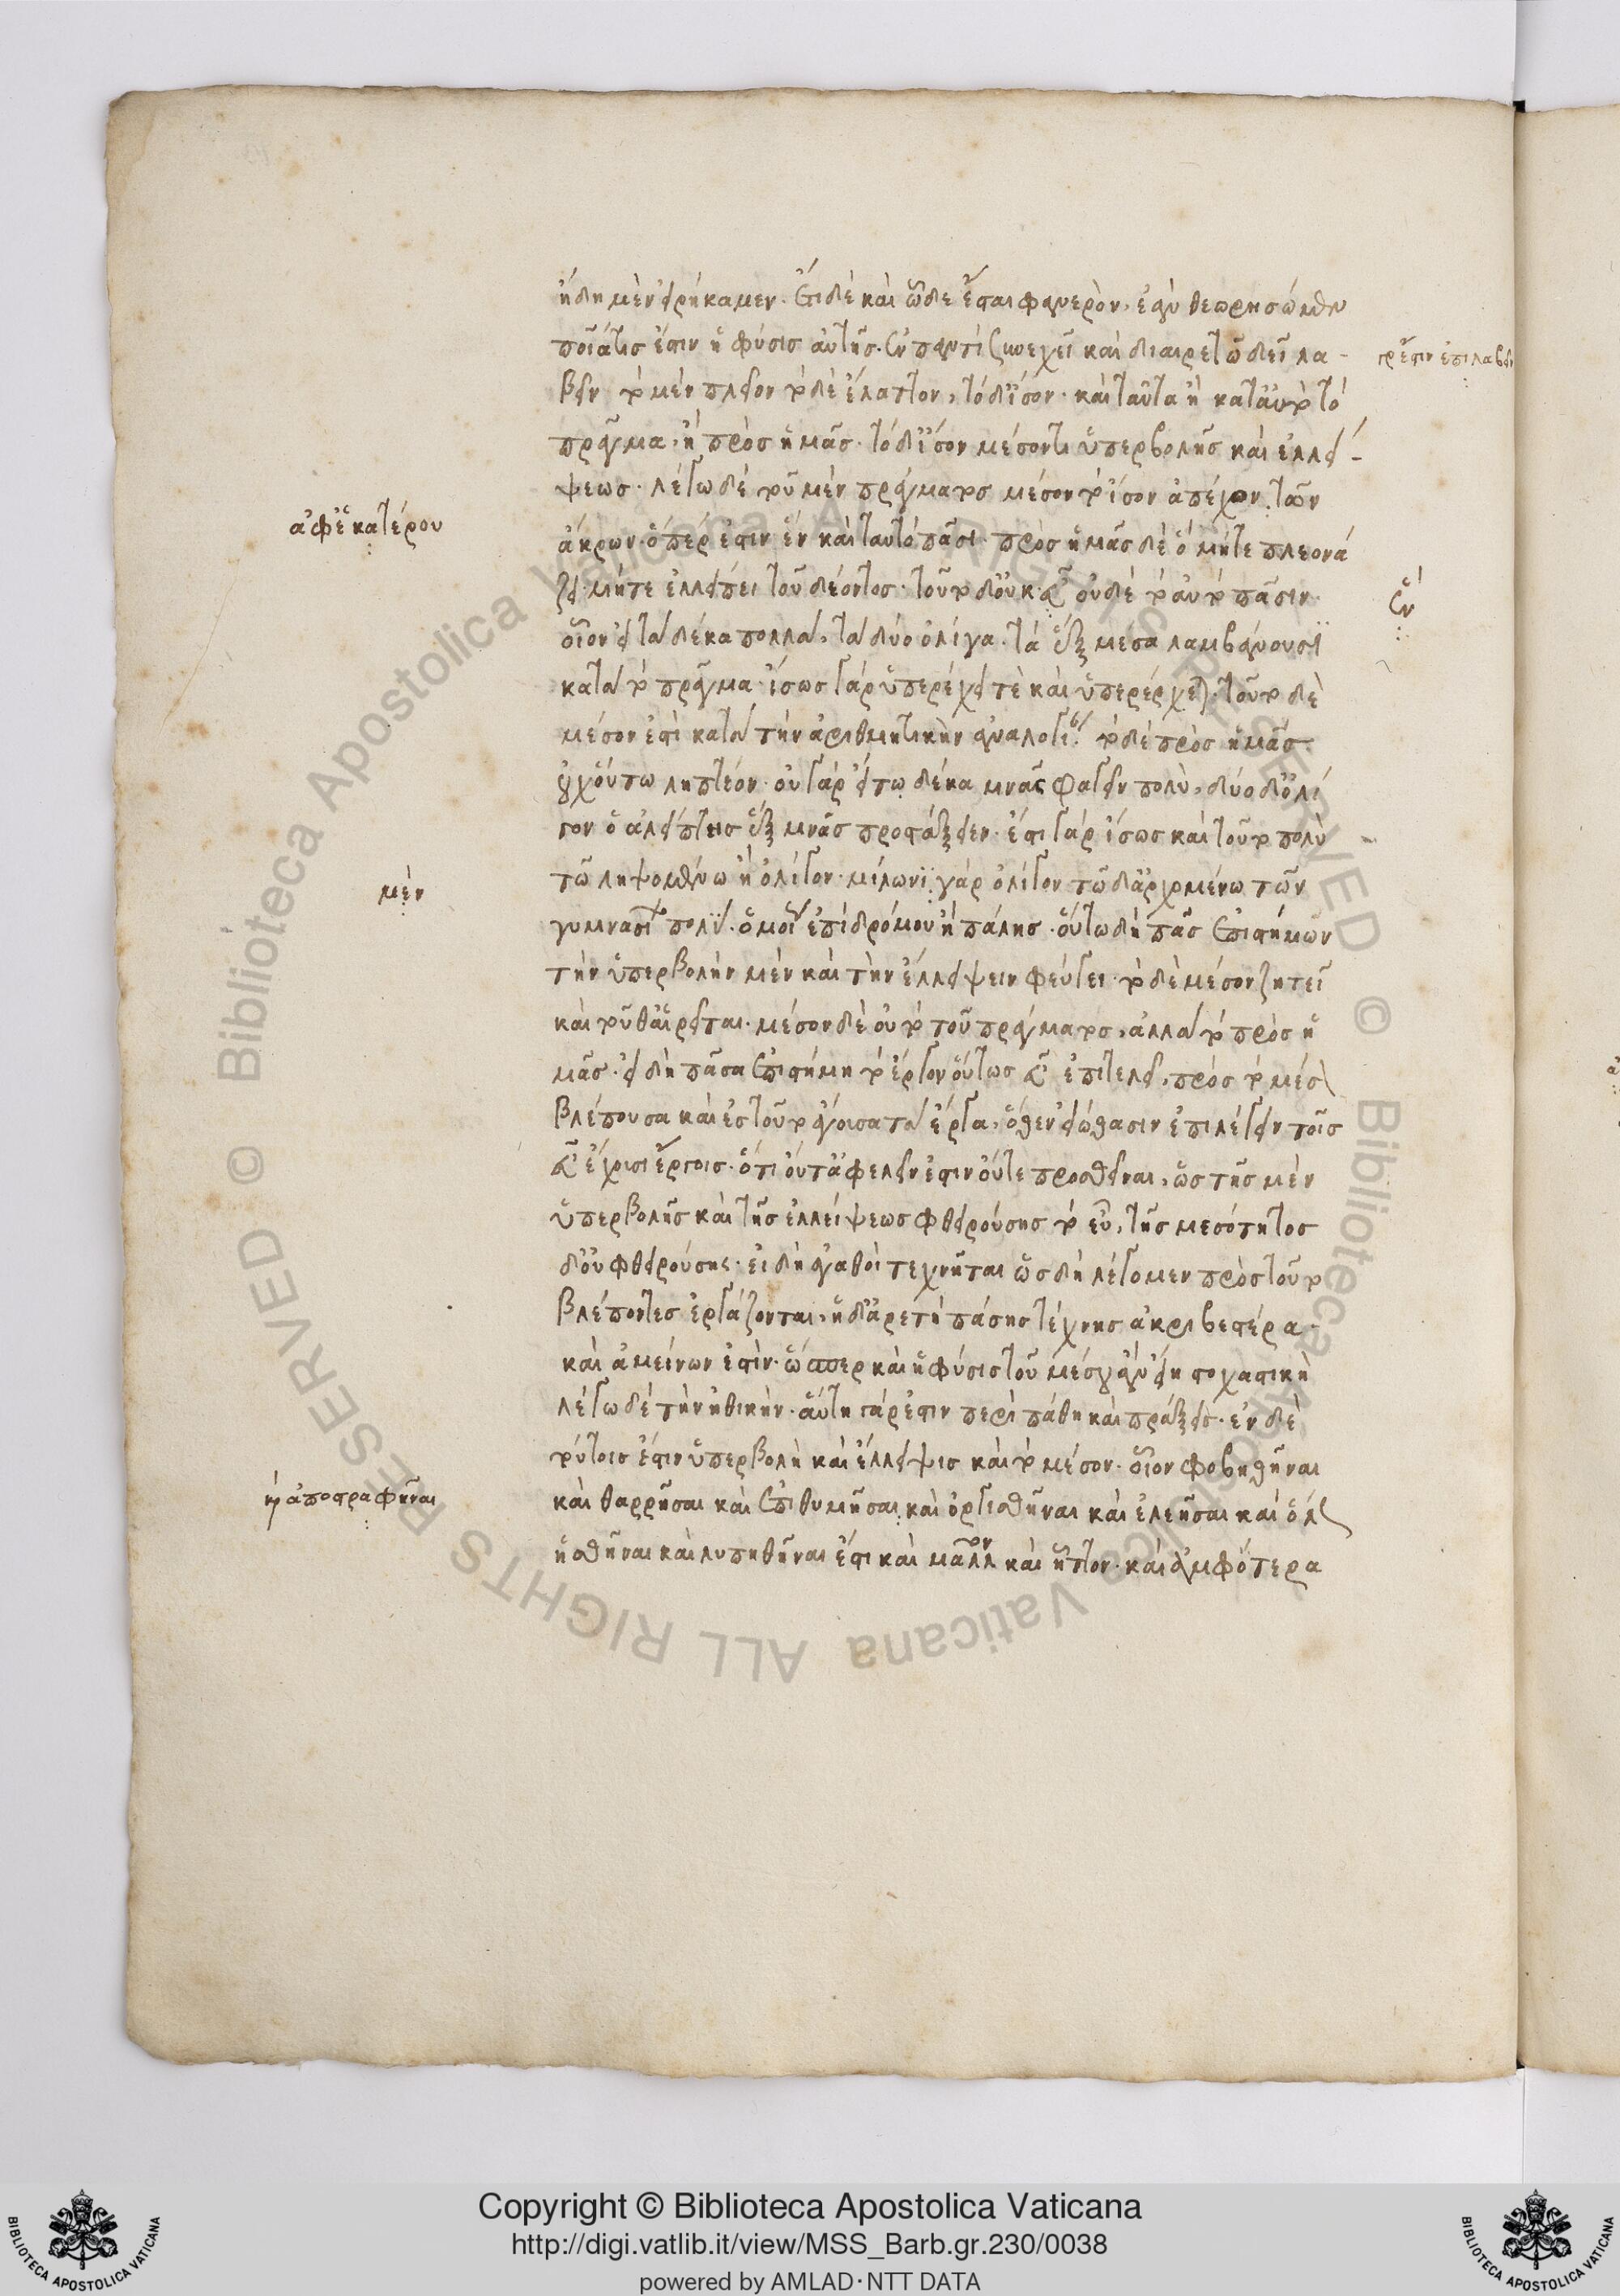 ἤδη μὲν εἰρήκαμεν. ἔτι δὲ καὶ ὧδε ἔσται φανερὸν, ἐὰν θεωρήσωμεν
ποία τίς ἐστιν ἡ φύσις αὐτῆς. ἐν παντὶ συνεχεῖ καὶ διαιρετῷ δεῖ λα-
βεῖν τὸ μὲν πλεῖον τὸ δὲ ἔλαττον, τὸ δ' ἴσον. καὶ ταῦτα ἢ κατ' αὐτὸ τὸ
πρᾶγμα, ἢ πρὸς ἡμᾶς. τὸ δ' ἴσον μέσον τι ὑπερβολῆς καὶ ἐλλεί-
ψεως. λέγω δὲ τοῦ μὲν πράγματος μέσον τὸ ἴσον ἀπέχον τῶν
ἄκρων. ὅπερ ἐστὶν ἓν καὶ ταυτὸ πᾶσι. πρὸς ἡμᾶς δὲ ὃ μήτε πλεονά
ζει μήτε ἐλλείπει τοῦ δέοντος. τοῦτο δ' οὐκ οὐδὲ τὸ αὐτὸ πᾶσιν.
οἷον εἰ τὰ δέκα πολλὰ, τὰ δύο ὀλίγα. τὰ ἓξ μέσα λαμβάνουσι
κατὰ τὸ πρᾶγμα. ἴσως γὰρ ὑπερέχει τὲ καὶ ὑπερέρχεται. τοῦτο δὲ
μέσον ἐστὶ κατὰ τὴν ἀριθμητικὴν ἀναλογίαν. τὸ δὲ πρὸς ἡμᾶς
οὐχ οὕτω ληπτέον. οὐ γὰρ εἴ τῳ δέκα μνᾶς φαγεῖν πολὺ, δύο δ' ὀλί
γον ὁ ἀλείπτης ἓξ μνᾶς προστάξειεν. ἔστι γὰρ ἴσως καὶ τοῦτο πολὺ
τῷ ληψομένῳ ἢ ὀλίγον. μίλωνι γὰρ ὀλίγον τῷ δ' ἀρχομένω τῶν
γυμνασίων πολύ. ὁμοίως ἐπὶ δρόμου ἢ πάλης. οὕτω δὴ πᾶς ἐπιστήμων
τὴν ὑπερβολὴν μὲν καὶ τὴν ἔλλειψειν φεύγει. τὸ δὲ μέσον ζητεῖ
καὶ τοῦθ' αἱρεῖται. μέσον δὲ οὐ τὸ τοῦ πράγματος, ἀλλὰ τὸ πρὸς ἡ
μᾶς. εἰ δὴ πᾶσα ἐπιστήμη τὸ ἔργον οὕτως εὖ ἐπιτελεῖ, πρὸς τὸ μέσον
βλέπουσα καὶ εἰς τοῦτο ἄγουσα τὰ ἔργα, ὅθεν εἰώθασιν ἐπιλέγειν τοῖς
εὖ ἔχουσι ἔργοις. ὅτι οὔτ' ἀφελεῖν ἔστιν οὔτε προσθεῖναι, ὡς τῆς μὲν
ὑπερβολῆς καὶ τῆς ἐλλείψεως φθειρούσης τὸ εὖ, τῆς μεσότητος
δ' οὐ φθειρούσης. εἰ δὴ ἀγαθοὶ τεχνῖται ὡς δὴ λέγομεν πρὸς τοῦτο
βλέποντες ἐργάζονται, ἡ δ' ἀρετὴ πάσης τέχνης ἀκριβεστέρα
καὶ ἀμείνων ἐστὶν. ὥσπερ καὶ ἡ φύσις τοῦ μέσου ἂν εἴη στοχαστικὴ
λέγω δὲ τὴν ἠθικὴν. αὕτη γάρ ἐστιν περὶ πάθη καὶ πράξεις. ἐν δὲ
τούτοις ἐστιν ὑπερβολὴ καὶ ἔλλειψις καὶ τὸ μέσον. οἷον φοβηθῆναι
καὶ θαρρῆσαι καὶ ἐπιθυμῆσαι καὶ ὀργισθῆναι καὶ ἐλεῆσαι καὶ ὅλως
ἡσθῆναι καὶ λυπηθῆναι ἔστι καὶ μᾶλλον καὶ ἧττον. καὶ ἀμφότερα
ἀφ' ἑκατέρου
μὲν
ἢ ἀποστραφῆναι
ἓν
Copyright © Biblioteca Apostolica Vaticana
http://digi.vatlib.it/view/MSS_Barb.gr.230/0038
powered by AMLAD·NTT DATA
BIBLIOTECA APOSTOLICA VATICANA
BIBLIOTECA APOSTOLICA VATICANA
© Biblioteca Apostolica Vaticana ALL RIGHTS RESERVED © Biblioteca Apostolica Vaticana ALL RIGHTS RESERVED